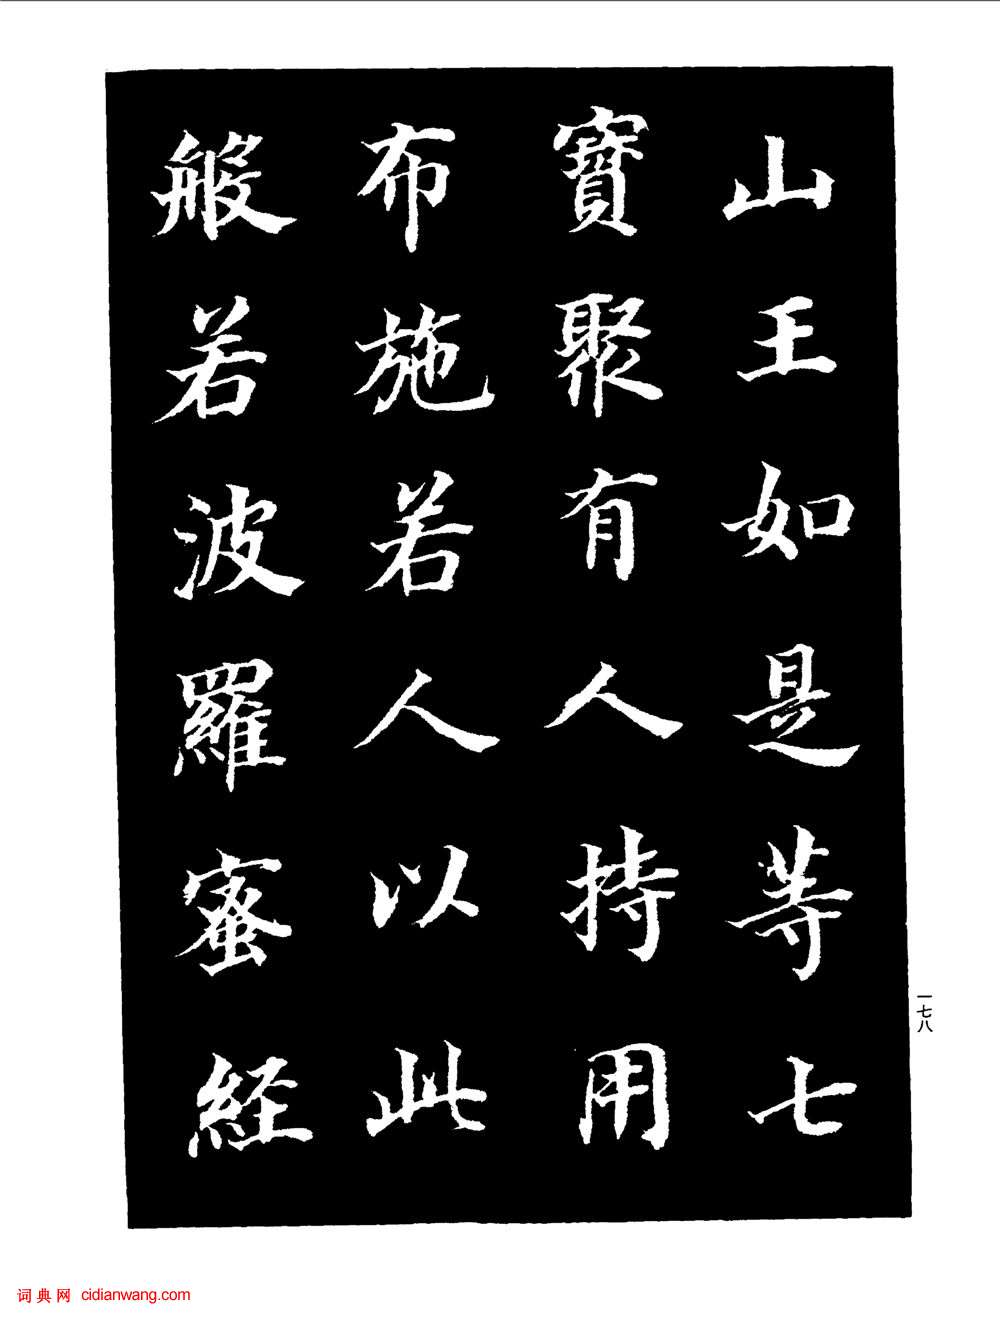 山王如是等七
寶聚有人持用
布施若人以此
般若波羅蜜經
一七八
词典网 cidianwang.com